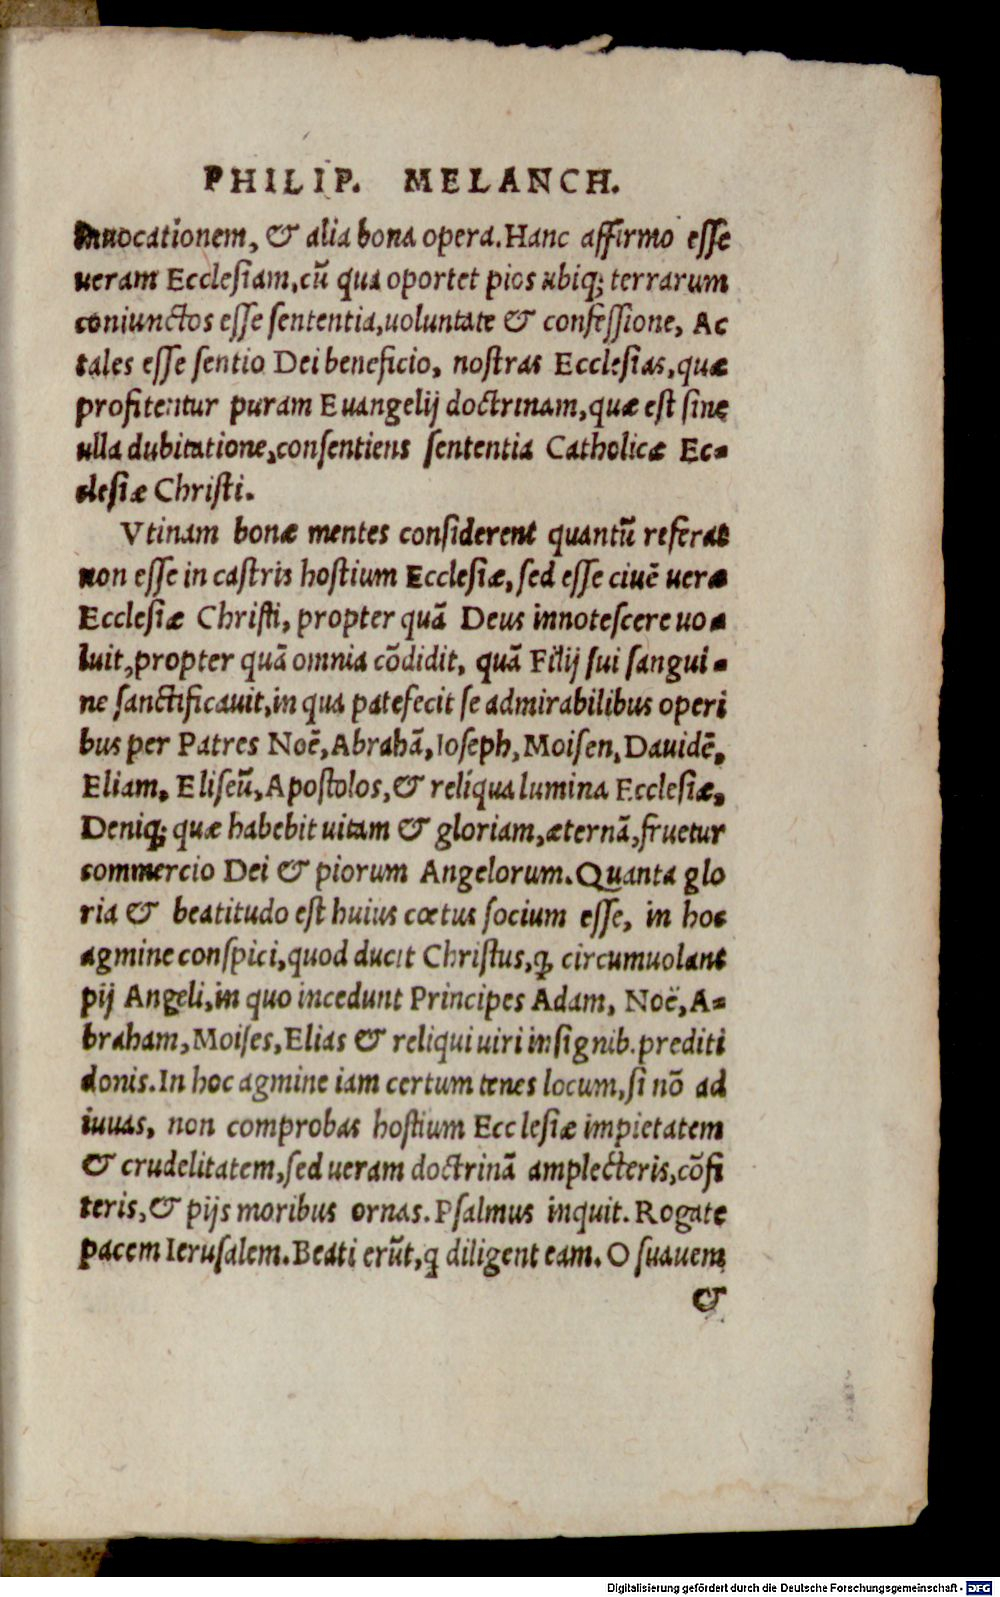 PHILIP. MELANCH.
inuocationem, & alia bona opera. Hanc affirmo esse
ueram Ecclesiam, cũ qua oportet pios ubiq; terrarum
coniunctos esse sententia, uoluntate & confessione, Ac
tales esse sentio Dei beneficio, nostras Ecclesias, quæ
profitentur puram Euangelij doctrinam, quæ est sine
ulla dubitatione, consentiens sententia Catholicæ Ec-
clesiæ Christi.
Vtinam bonæ mentes considerent quantũ referat
non esse in castris hostium Ecclesiæ, sed esse ciuẽ ueræ
Ecclesiæ Christi, propter quã Deus innotescere uo-
luit, propter quã omnia cõdidit, quã Filij sui sangui-
ne sanctificauit, in qua patefecit se admirabilibus operi
bus per Patres Noẽ, Abrahã, Ioseph, Moisen, Dauidẽ,
Eliam, Eliseũ, Apostolos, & reliqua lumina Ecclesiæ,
Deniq; quæ habebit uitam & gloriam, æternã, fruetur
commercio Dei & piorum Angelorum. Quanta glo
ria & beatitudo est huius cœtus socium esse, in hoc
agmine conspici, quod ducit Christus, q̃ circumuolant
pij Angeli, in quo incedunt Principes Adam, Noë, A-
braham, Moises, Elias & reliqui uiri insignib. prediti
donis. In hoc agmine iam certum tenes locum, si nõ ad
iuuas, non comprobas hostium Ecclesiæ impietatem
& crudelitatem, sed ueram doctrinã amplecteris, cõfi
teris, & pijs moribus ornas. Psalmus inquit. Rogate
pacem Ierusalem. Beati erũt, q̃ diligent eam. O suauem
&
Digitalisierung gefördert durch die Deutsche Forschungsgemeinschaft - DFG